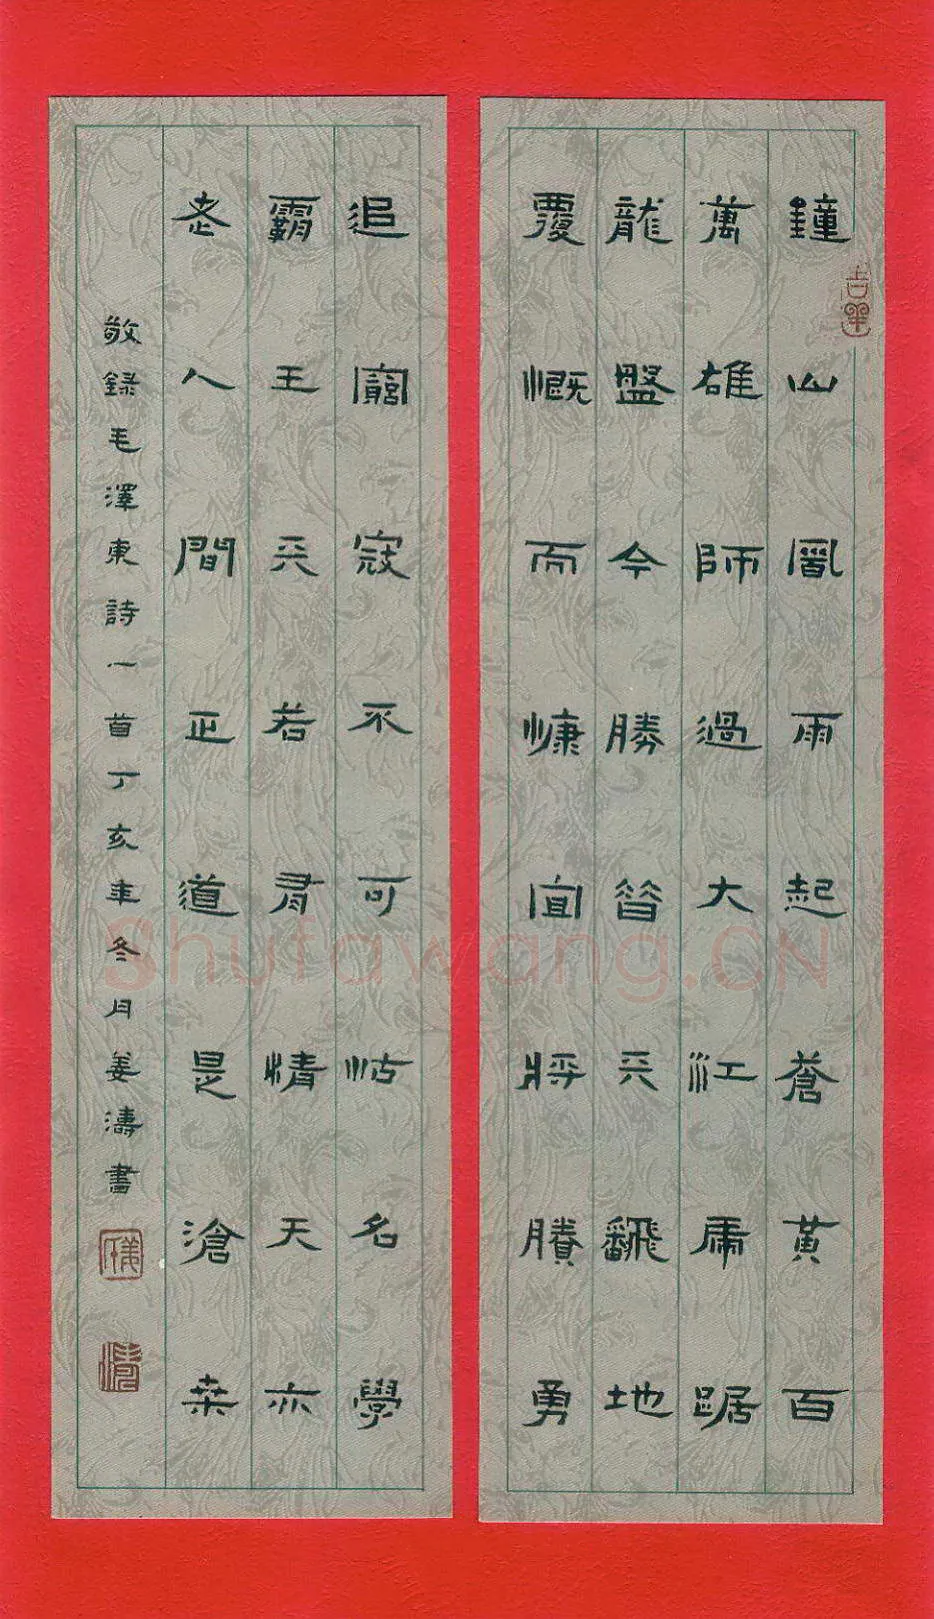 鐘山風雨起蒼黃百
萬雄師過大江虎踞
龍盤今勝昔天飜地
覆慨而慷宜將賸勇
追窮寇不可沽名學
霸王天若有情天亦
老人間正道是滄桒
敬錄毛澤東詩一首丁亥年冬月姜濤書
吉羊
Shufawang.CN